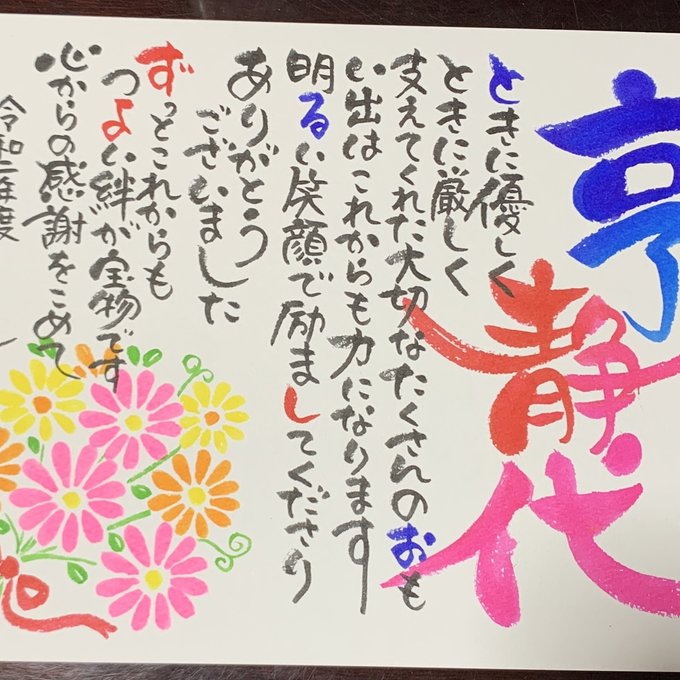 亨
静代
ときに優しく
ときに厳しく
支えてくれた大切なたくさんのおも
い出はこれからも力になります
明るい笑顔で励ましてくださり
ありがとう
ございました
ずっとこれからも
つよい絆が宝物です
心からの感謝をこめて
令和二年度